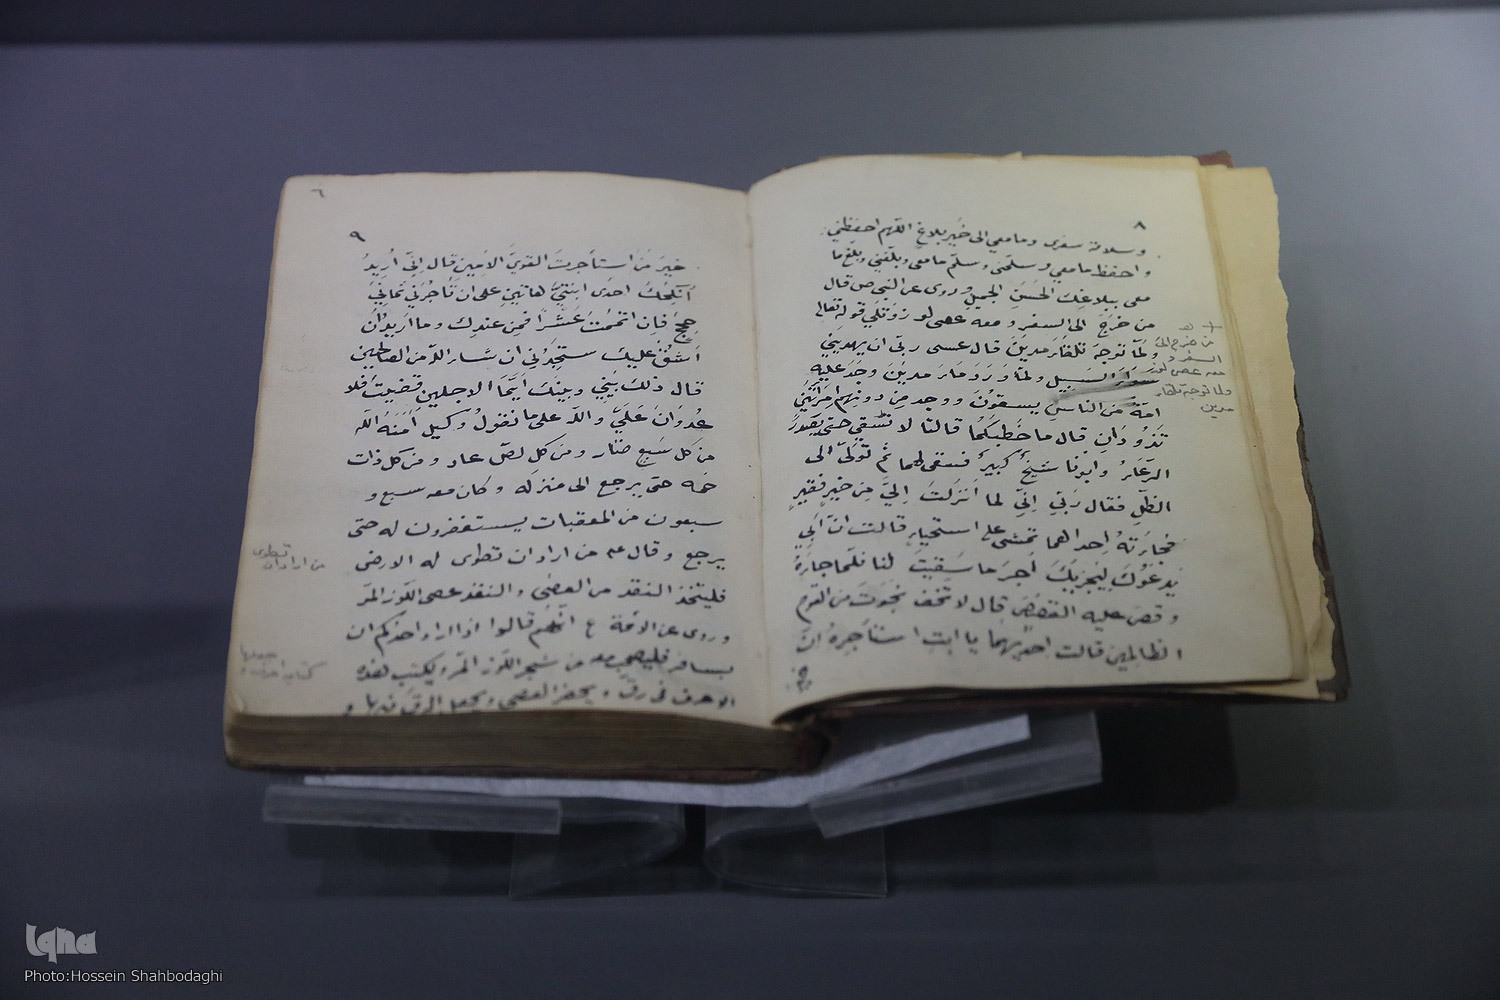 ٨
وسلامة سفری وما معي الی خير بلاغ اللّهم احفظنی
واحفظ ما معي وسلمنی وسلّم ما معی وبلّغنی وبلّغ ما
معی ببلاغك الحَسَنِ الجميلِ وروی عن النبی ص قال
من خرَجَ الی السفر و معه عصی لوز وتلی قوله تعالی
ولَمّا توجهَ تلقاءَ مدينَ قال عسی ربّی ان يهدينی
سواءَ السَبيل ولمّا وَرَدَ ماءَ مدينَ وجَدَ عليهِ
امّة مَن الناسِ يسقونُ ووجد مِن دونهم امرأتينِ
تَذُودَانِ قال ما خَطبكما قالتا لا نَسقي حتی يصدرَ
الرّعاءُ وابونا شيخٌ كبيرٌ فسقی لهما ثم تولّیٰ الی
الظلِّ فقال رَبّي اِنّي لما اَنزلتَ اِليَّ مِن خيرٍ فقيرٍ
فجاءَتهُ احداهما تمشی علی استحياءٍ قالت انّ اَبي
يَدعُوكَ لِيَجزيَكَ اَجرَ ما سَقيتَ لنا فلمّا جاءَهُ
وقصّ عليه القَصَصَ قال لا تخف نجوتَ من القومِ
الظالمين قالت احديهما يا ابت استأجرهُ انّ
من خرج الی
السفر و
معه عصی لوز
ولما توجه تلقاء
مدين
٦
٩
خيرَ مَن استأجرتَ القویّ الامين قال انّي اُريدُ
اُنكحكَ احدی ابنتيَّ هاتينِ علی ان تأجُرَنی ثمانيَ
حِججٍ فاِن اتممتَ عَشراً فمِن عندِك وما اريدُ اَن
اَشقّ عليك ستجدُنی ان شاء اللّه من الصالحين
قال ذلك بَيْني وبينك ايّما الاجلين قضيتُ فلا
عُدوَانَ عَلَيّ واللّه علی ما نقولُ وكيل آمَنَهُ اللّه
من كل سَبع ضار ومن كلِ لصّ عادٍ ومن كل ذات
حمه حتی يرجع الی منزله وكان معه سبع و
سبعون من المعقبات يستغفرون له حتی
يرجع وقال ع من اراد ان تطوی له الارض
فليتخذ النقد من العصی والنقد عصی اللّوز المرّ
وروی عن الائمة ع انّهم قالوا اذا اراد احدكم ان
يسافر فليصحب معه من شجر اللّوز المرّ ويكتب هذه
الاحرف فی رقّ ويحفر العصی ويجعل الرق فيها و
من اراد ان تطوی
Iqna
Photo:Hossein Shahbodaghi